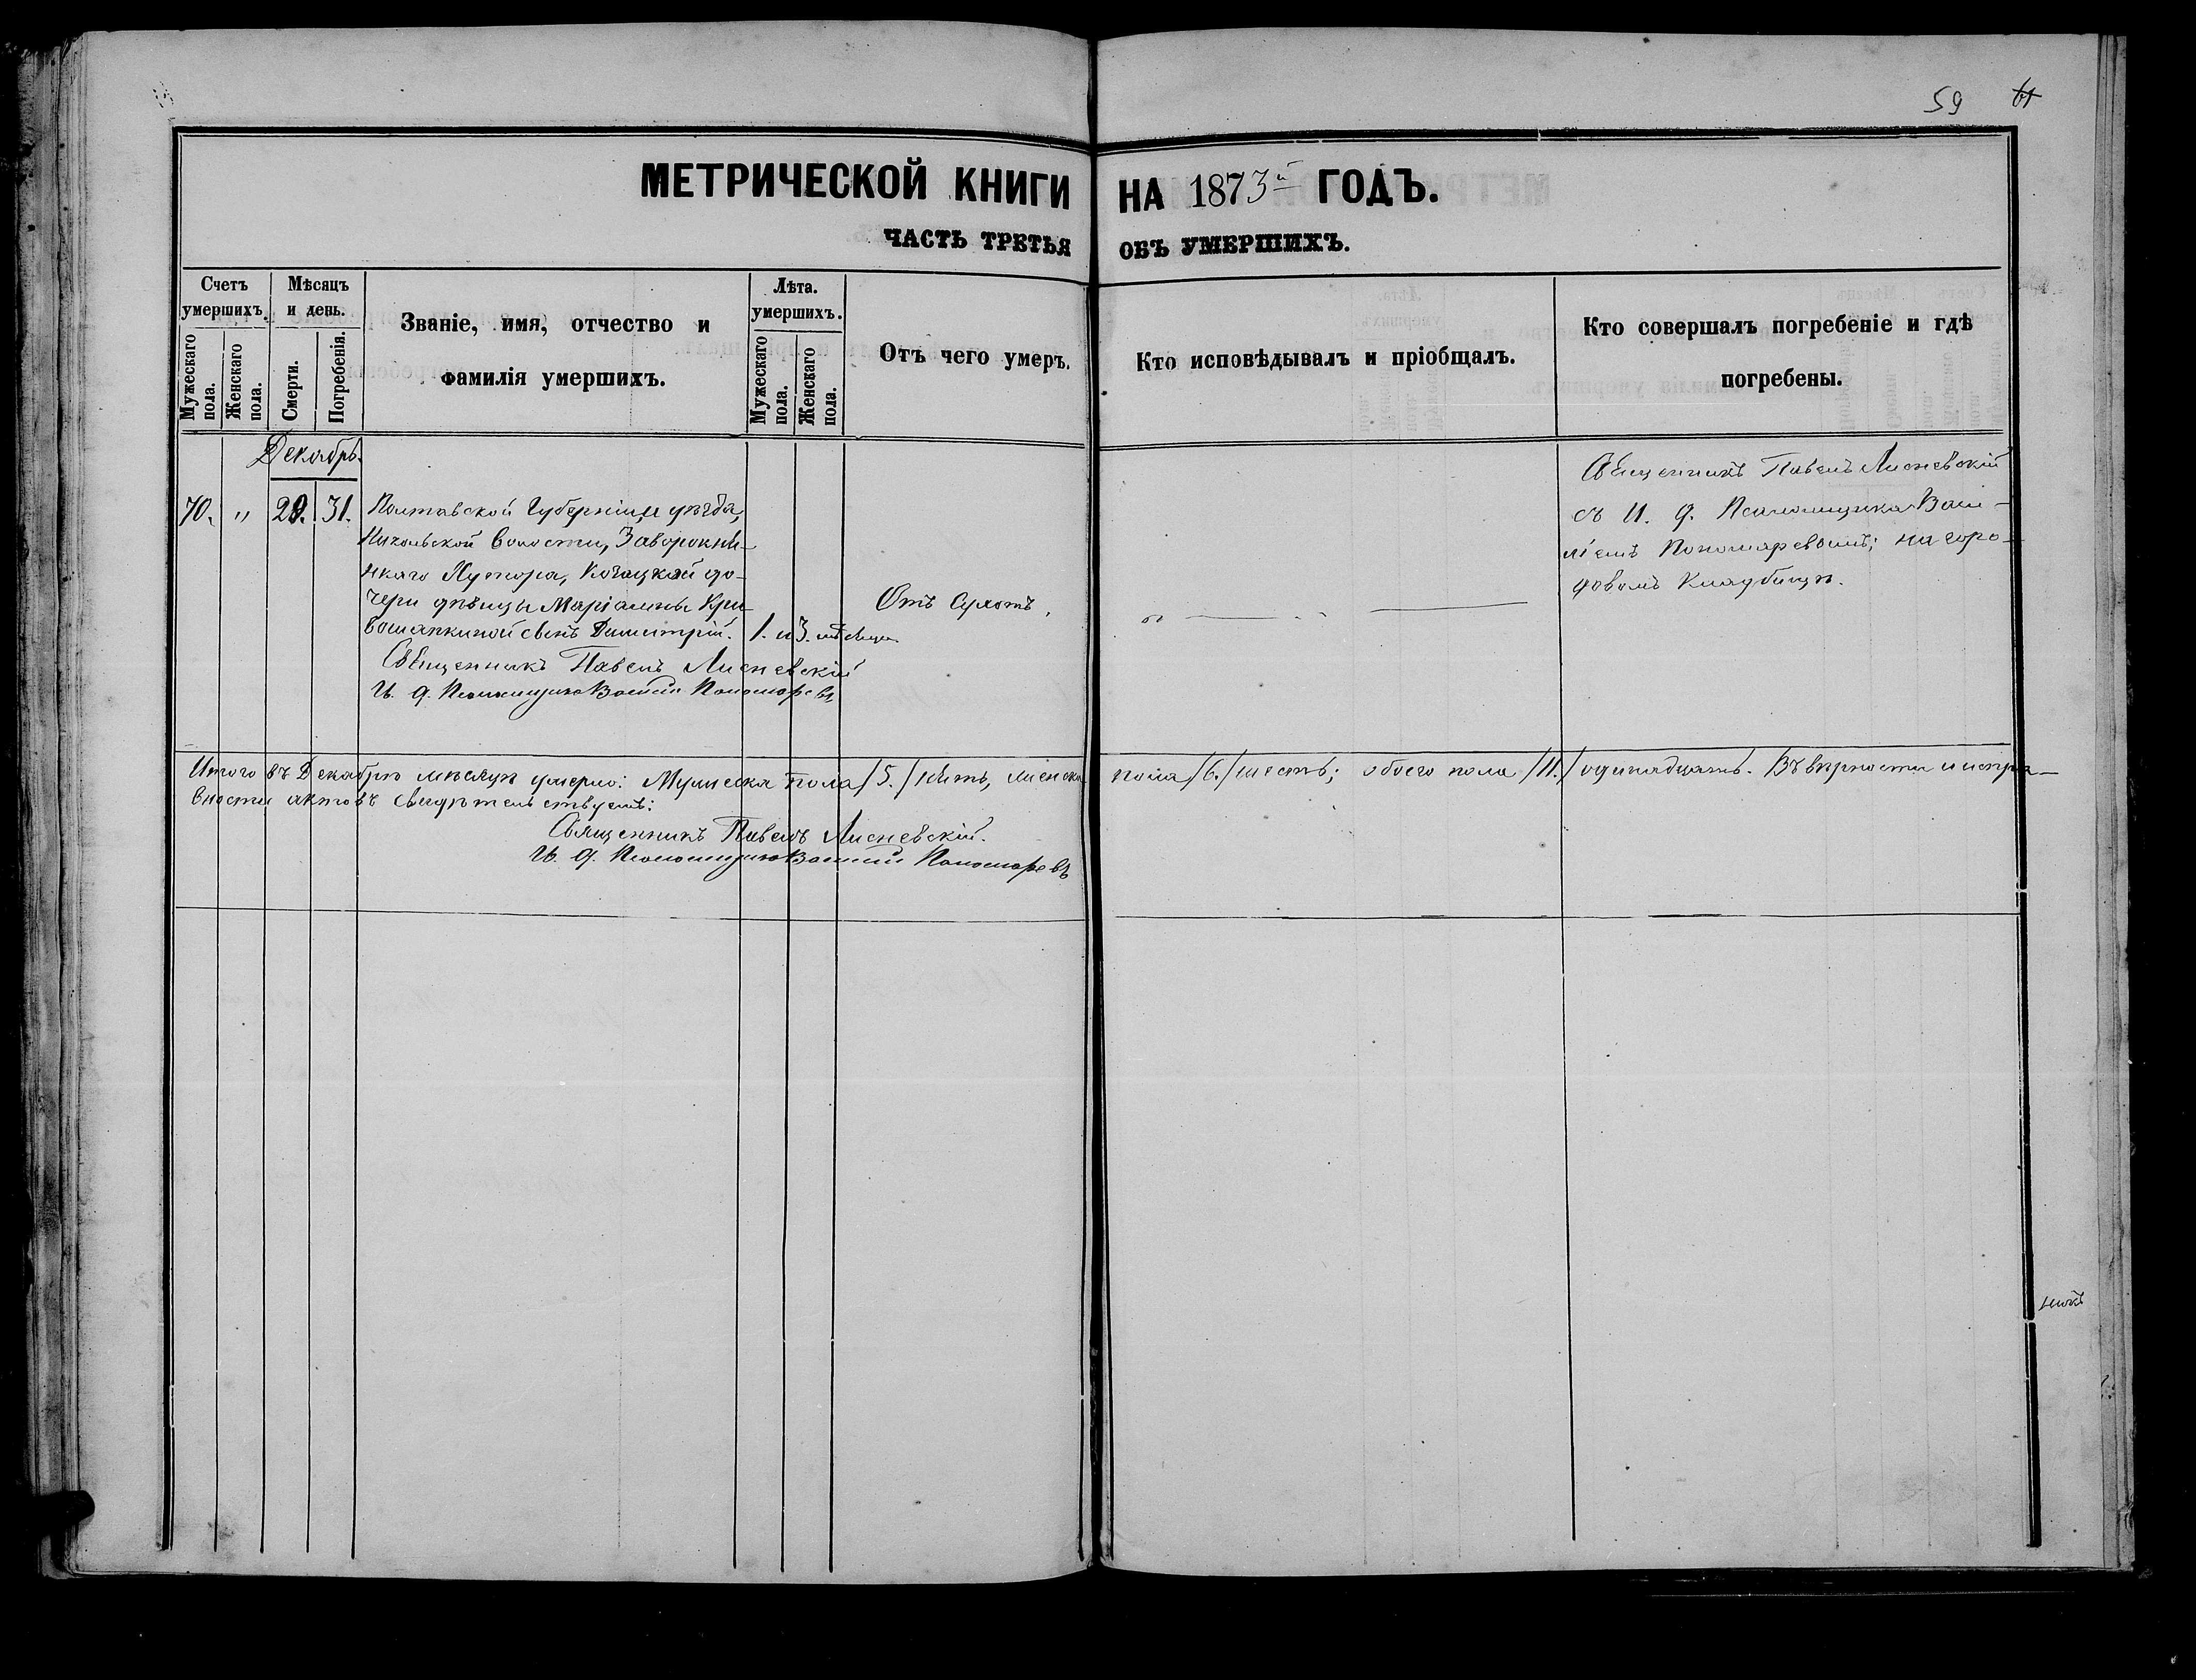 59 61
МЕТРИЧЕСКОЙ КНИГИ НА 1873й ГОДЪ.
ЧАСТЬ ТРЕТЬЯ ОБЪ УМЕРШИХЪ.
Счетъ умершихъ.
Мужескаго пола.
Женскаго пола.
Мѣсяцъ и день.
Смерти.
Погребенія.
Званіе, имя, отчество и
фамилія умершихъ.
Лѣта. умершихъ.
Мужескаго пола.
Женскаго пола.
Отъ чего умеръ.
Кто исповѣдывалъ и пріобщалъ.
Кто совершалъ погребеніе и гдѣ
погребены.
Декабрь.
70. " 29. 31.
Полтавской Губерніи и уѣзда,
волости,
Хутора, Козацкой до-
чери дѣвицы Маріамны Кри-
вошапкиной сынъ Димитрій. 1. и 3. мѣсяца
Отъ Сухотъ.
Священникъ Павелъ Лисневскій
И. д. Псаломщика Василій Пономаревъ
Священникъ Павелъ Лисневскій
съ И. д. Псаломщика Васи-
ліемъ Пономаревымъ; на горо-
довомъ кладбищѣ.
Итого въ Декабрѣ мѣсяцѣ умерло: Мужеска пола /5./ пять, женска пола /6./ шесть; обоего пола /11./ одинадцать. Въ вѣрности и испра-
вности актовъ свидѣтельствуемъ:
Священникъ Павелъ Лисневскій.
И. д. Псаломщика Василій Пономаревъ